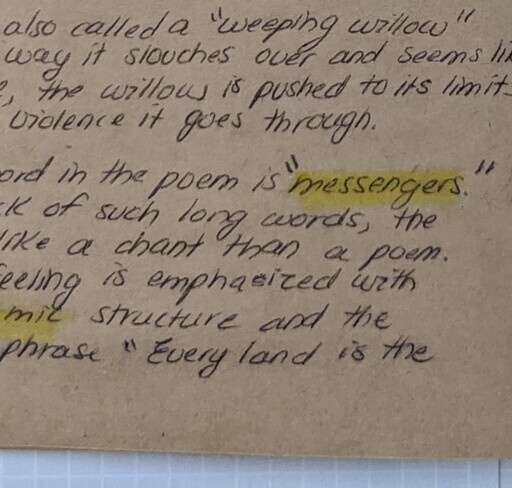 also called a "weeping willow"
way it slouches over and seems li
, the willow is pushed to its limit
violence it goes through.
ord in the poem is "messengers."
ck of such long words, the
like a chant than a poem.
feeling is emphasized with
mic structure and the
phrase "Every land is the